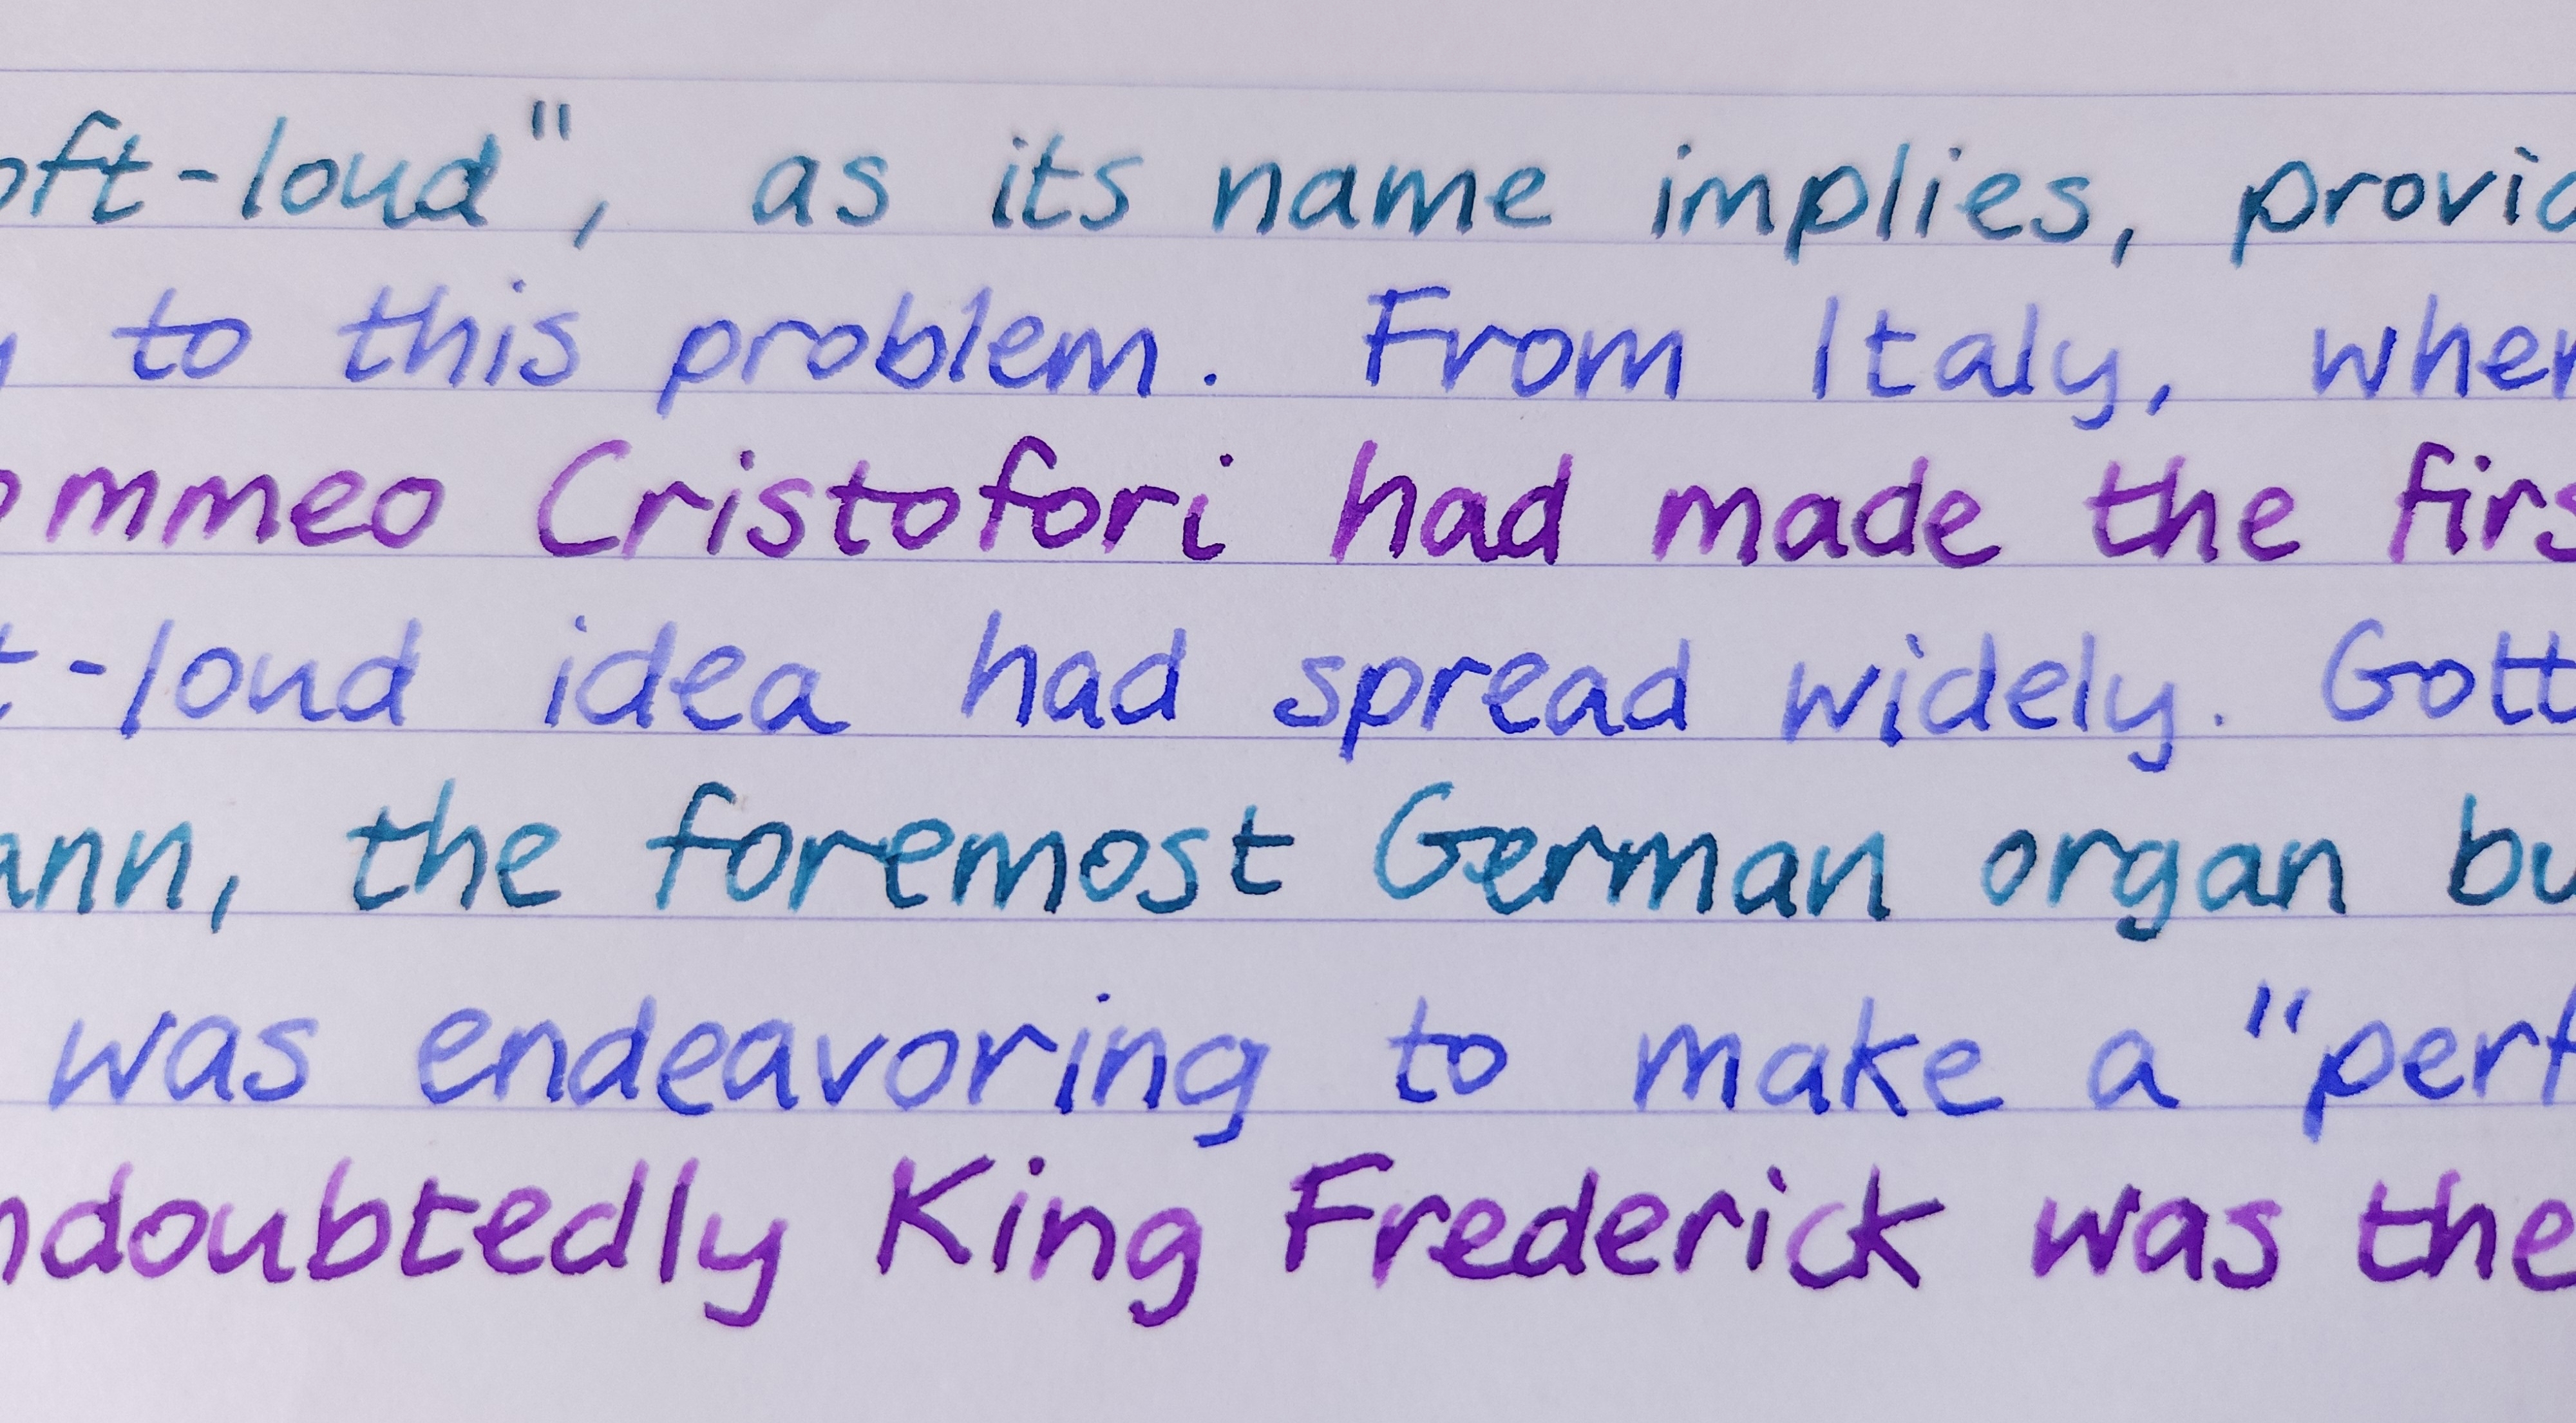 oft-loud", as its name implies, provid
y to this problem. From Italy, wher
ommeo Cristofori had made the firs
t-loud idea had spread widely. Gott
ann, the foremost German organ bu
was endeavoring to make a "perf
ndoubtedly King Frederick was the